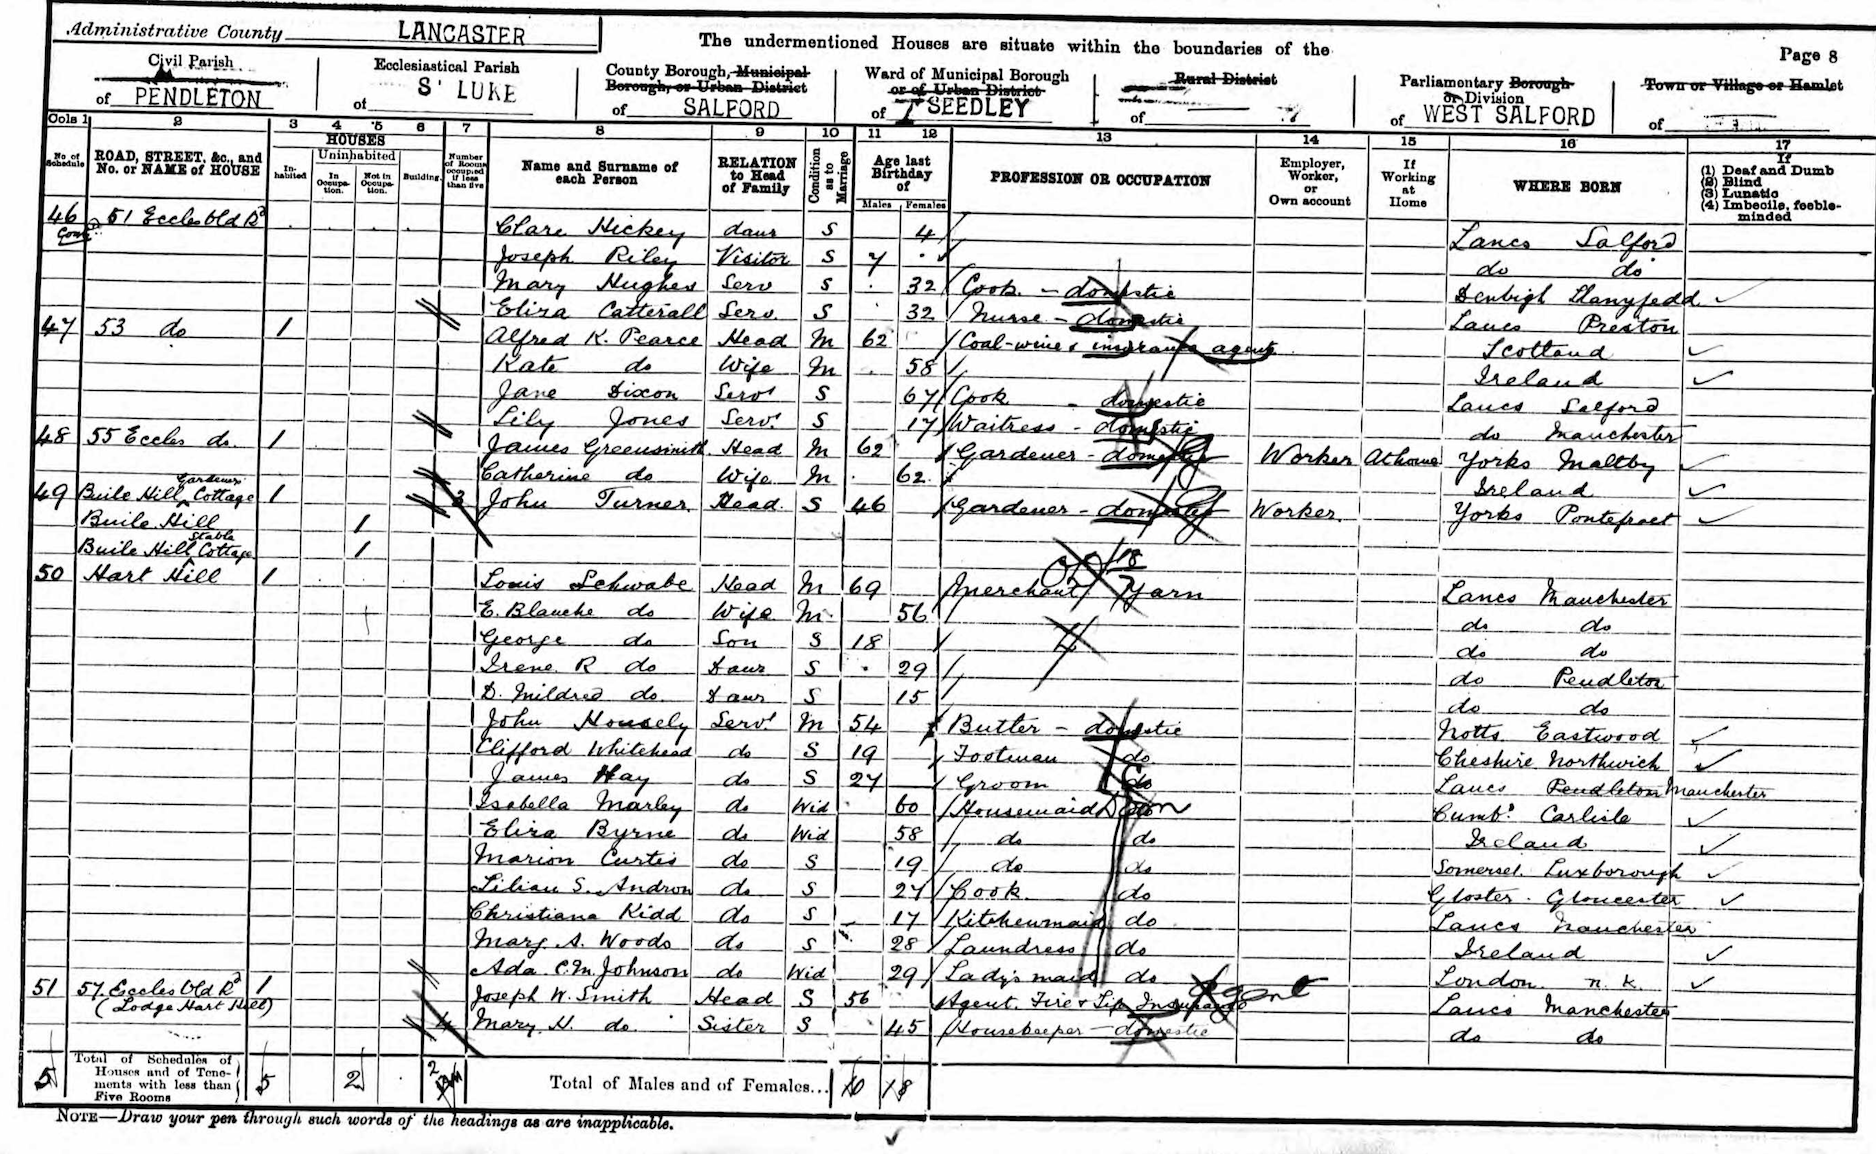 Administrative County LANCASTER
The undermentioned Houses are situate within the boundaries of the
Page 8
Civil Parish of PENDLETON
Ecclesiastical Parish of S' LUKE
County Borough, Municipal Borough, or Urban District of SALFORD
Ward of Municipal Borough or of Urban District of SEEDLEY
Rural District of
Parliamentary Borough or Division of WEST SALFORD
Town or Village or Hamlet of
Cols 1 2 3 4 5 6 7 8 9 10 11 12 13 14 15 16 17
No of Schedule
ROAD, STREET, &c., and No. or NAME of HOUSE
HOUSES
Inhabited
Uninhabited
In Occupation.
Not in Occupation.
Building.
Number of Rooms occupied if less than five
Name and Surname of each Person
RELATION to Head of Family
Condition as to Marriage
Age last Birthday of
Males Females
PROFESSION OR OCCUPATION
Employer, Worker, or Own account
If Working at Home
WHERE BORN
If
(1) Deaf and Dumb
(2) Blind
(3) Lunatic
(4) Imbecile, feeble-minded
46 51 Eccles Old Rd Clare Hickey daur S 4 Lancs Salford
Joseph Riley Visitor S 7 do do
Mary Hughes Serv S 32 Cook - domestic Denbigh Llanyfedd
Eliza Catterall Serv. S 32 Nurse - domestic Lancs Preston
47 53 do 1 Alfred K. Pearce Head M 62 Coal-wine & insurance agent Scotland
Kate do Wife M 58 Ireland
Jane Dixon Servt S 67 Cook - domestic Lancs Salford
Lily Jones Servt S 17 Waitress - domestic do Manchester
48 55 Eccles do. 1 James Greensmith Head M 62 Gardener - domestic Worker At home Yorks Maltby
Catherine do Wife M 62 Ireland
49 Buile Hill Gardener Cottage 1 3 John Turner Head S 46 Gardener - domestic Worker Yorks Pontefract
Buile Hill 1
Buile Hill Stable Cottage 1
50 Hart Hill 1 Louis Schwabe Head M 69 Merchant Yarn Lancs Manchester
E. Blanche do Wife M 56 do do
George do Son S 18 do do
Irene R do Daur S 29 do Pendleton
D. Mildred do Daur S 15 do do
John Housely Servt M 54 Butler - domestic Notts Eastwood
Clifford Whitehead do S 19 Footman do Cheshire Northwich
James Hay do S 27 Groom do Lancs Pendleton Manchester
Isabella Marley do Wid 60 Housemaid Dom Cumbd Carlisle
Eliza Byrne do Wid 58 do do Ireland
Marion Curtis do S 19 do do Somerset Luxborough
Lilian S. Andron do S 27 Cook do Gloster Gloucester
Christiana Kidd do S 17 Kitchenmaid do Lancs Manchester
Mary A. Woods do S 28 Laundress do Ireland
Ada C.M. Johnson do Wid 29 Ladys maid do London n.k.
51 57 Eccles Old Rd 1 Joseph W. Smith Head S 56 Agent. Fire & Life Insurance Agent Lancs Manchester
(Lodge Hart Hill) 4 Mary H. do Sister S 45 Housekeeper - domestic do do
5 Total of Schedules of Houses and of Tenements with less than Five Rooms 5 2 2 Total of Males and of Females... 10 18
NOTE—Draw your pen through such words of the headings as are inapplicable.